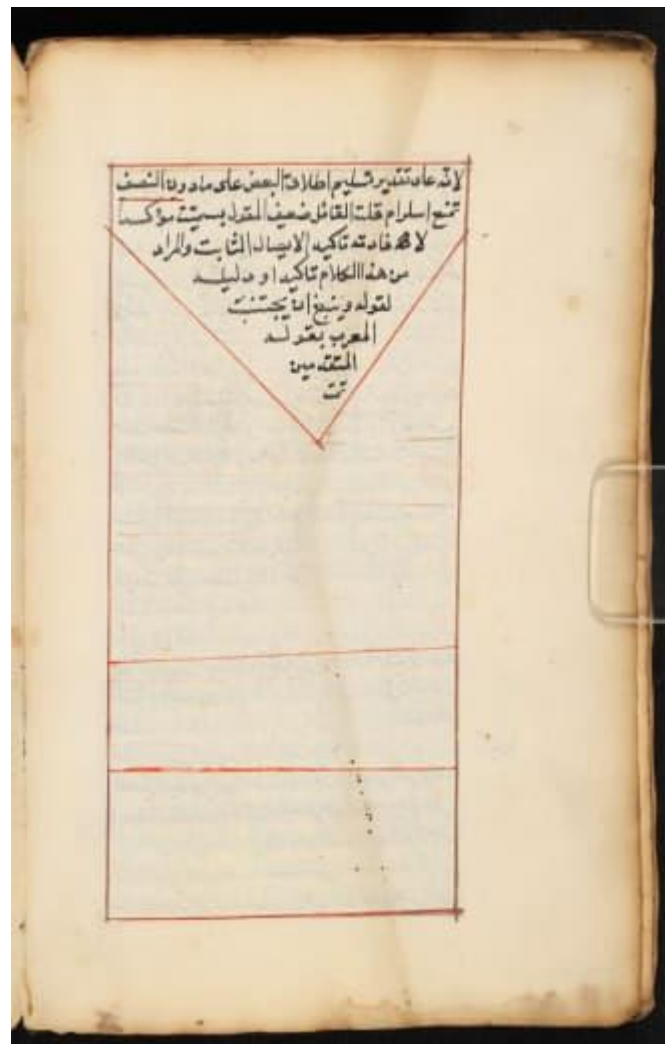 لانه على تقدير تسليم اطلاق البعض على مادون النصف
تمنع استلزام قلة القائل ضعيف المقول بسميت مؤكدا
لافادته تاكيد الايصال الثابت والمراد
من هذا الكلام تاكيد او دليل
لقوله وينبغي ان يجتنب
المعرب بقوله
المتقدمين
تمت